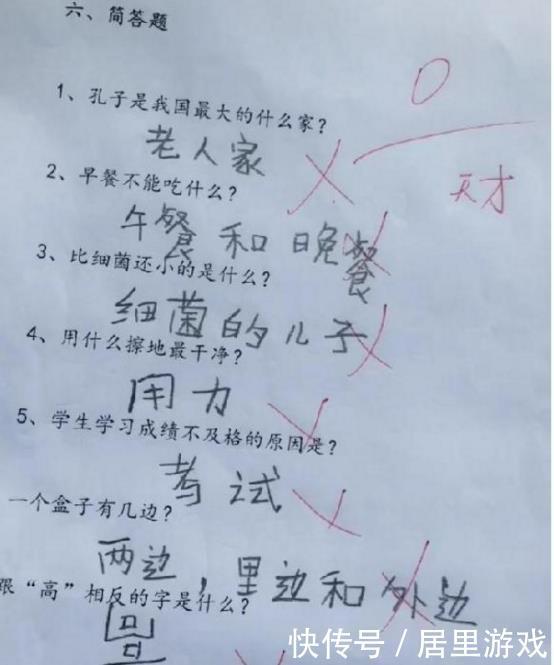 六、简答题
0
1、孔子是我国最大的什么家？
老人家
天才
2、早餐不能吃什么？
午餐和晚餐
3、比细菌还小的是什么？
细菌的儿子
4、用什么擦地最干净？
用力
5、学生学习成绩不及格的原因是？
考试
一个盒子有几边？
两边，里边和外边
跟“高”相反的字是什么？
快传号/居里游戏